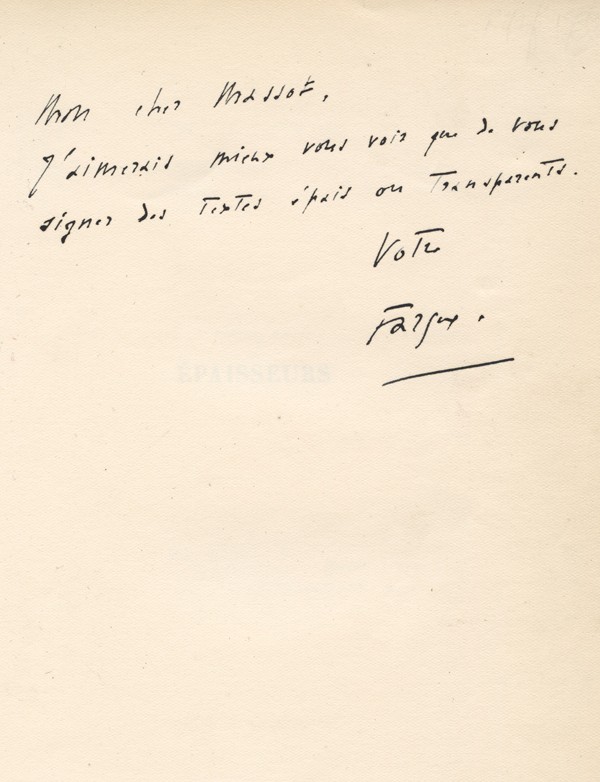 Mon cher Massot,
J'aimerais mieux vous voir que de vous
signer des textes épais ou transparents.
Votre
Fargue.
ÉPAISSEURS